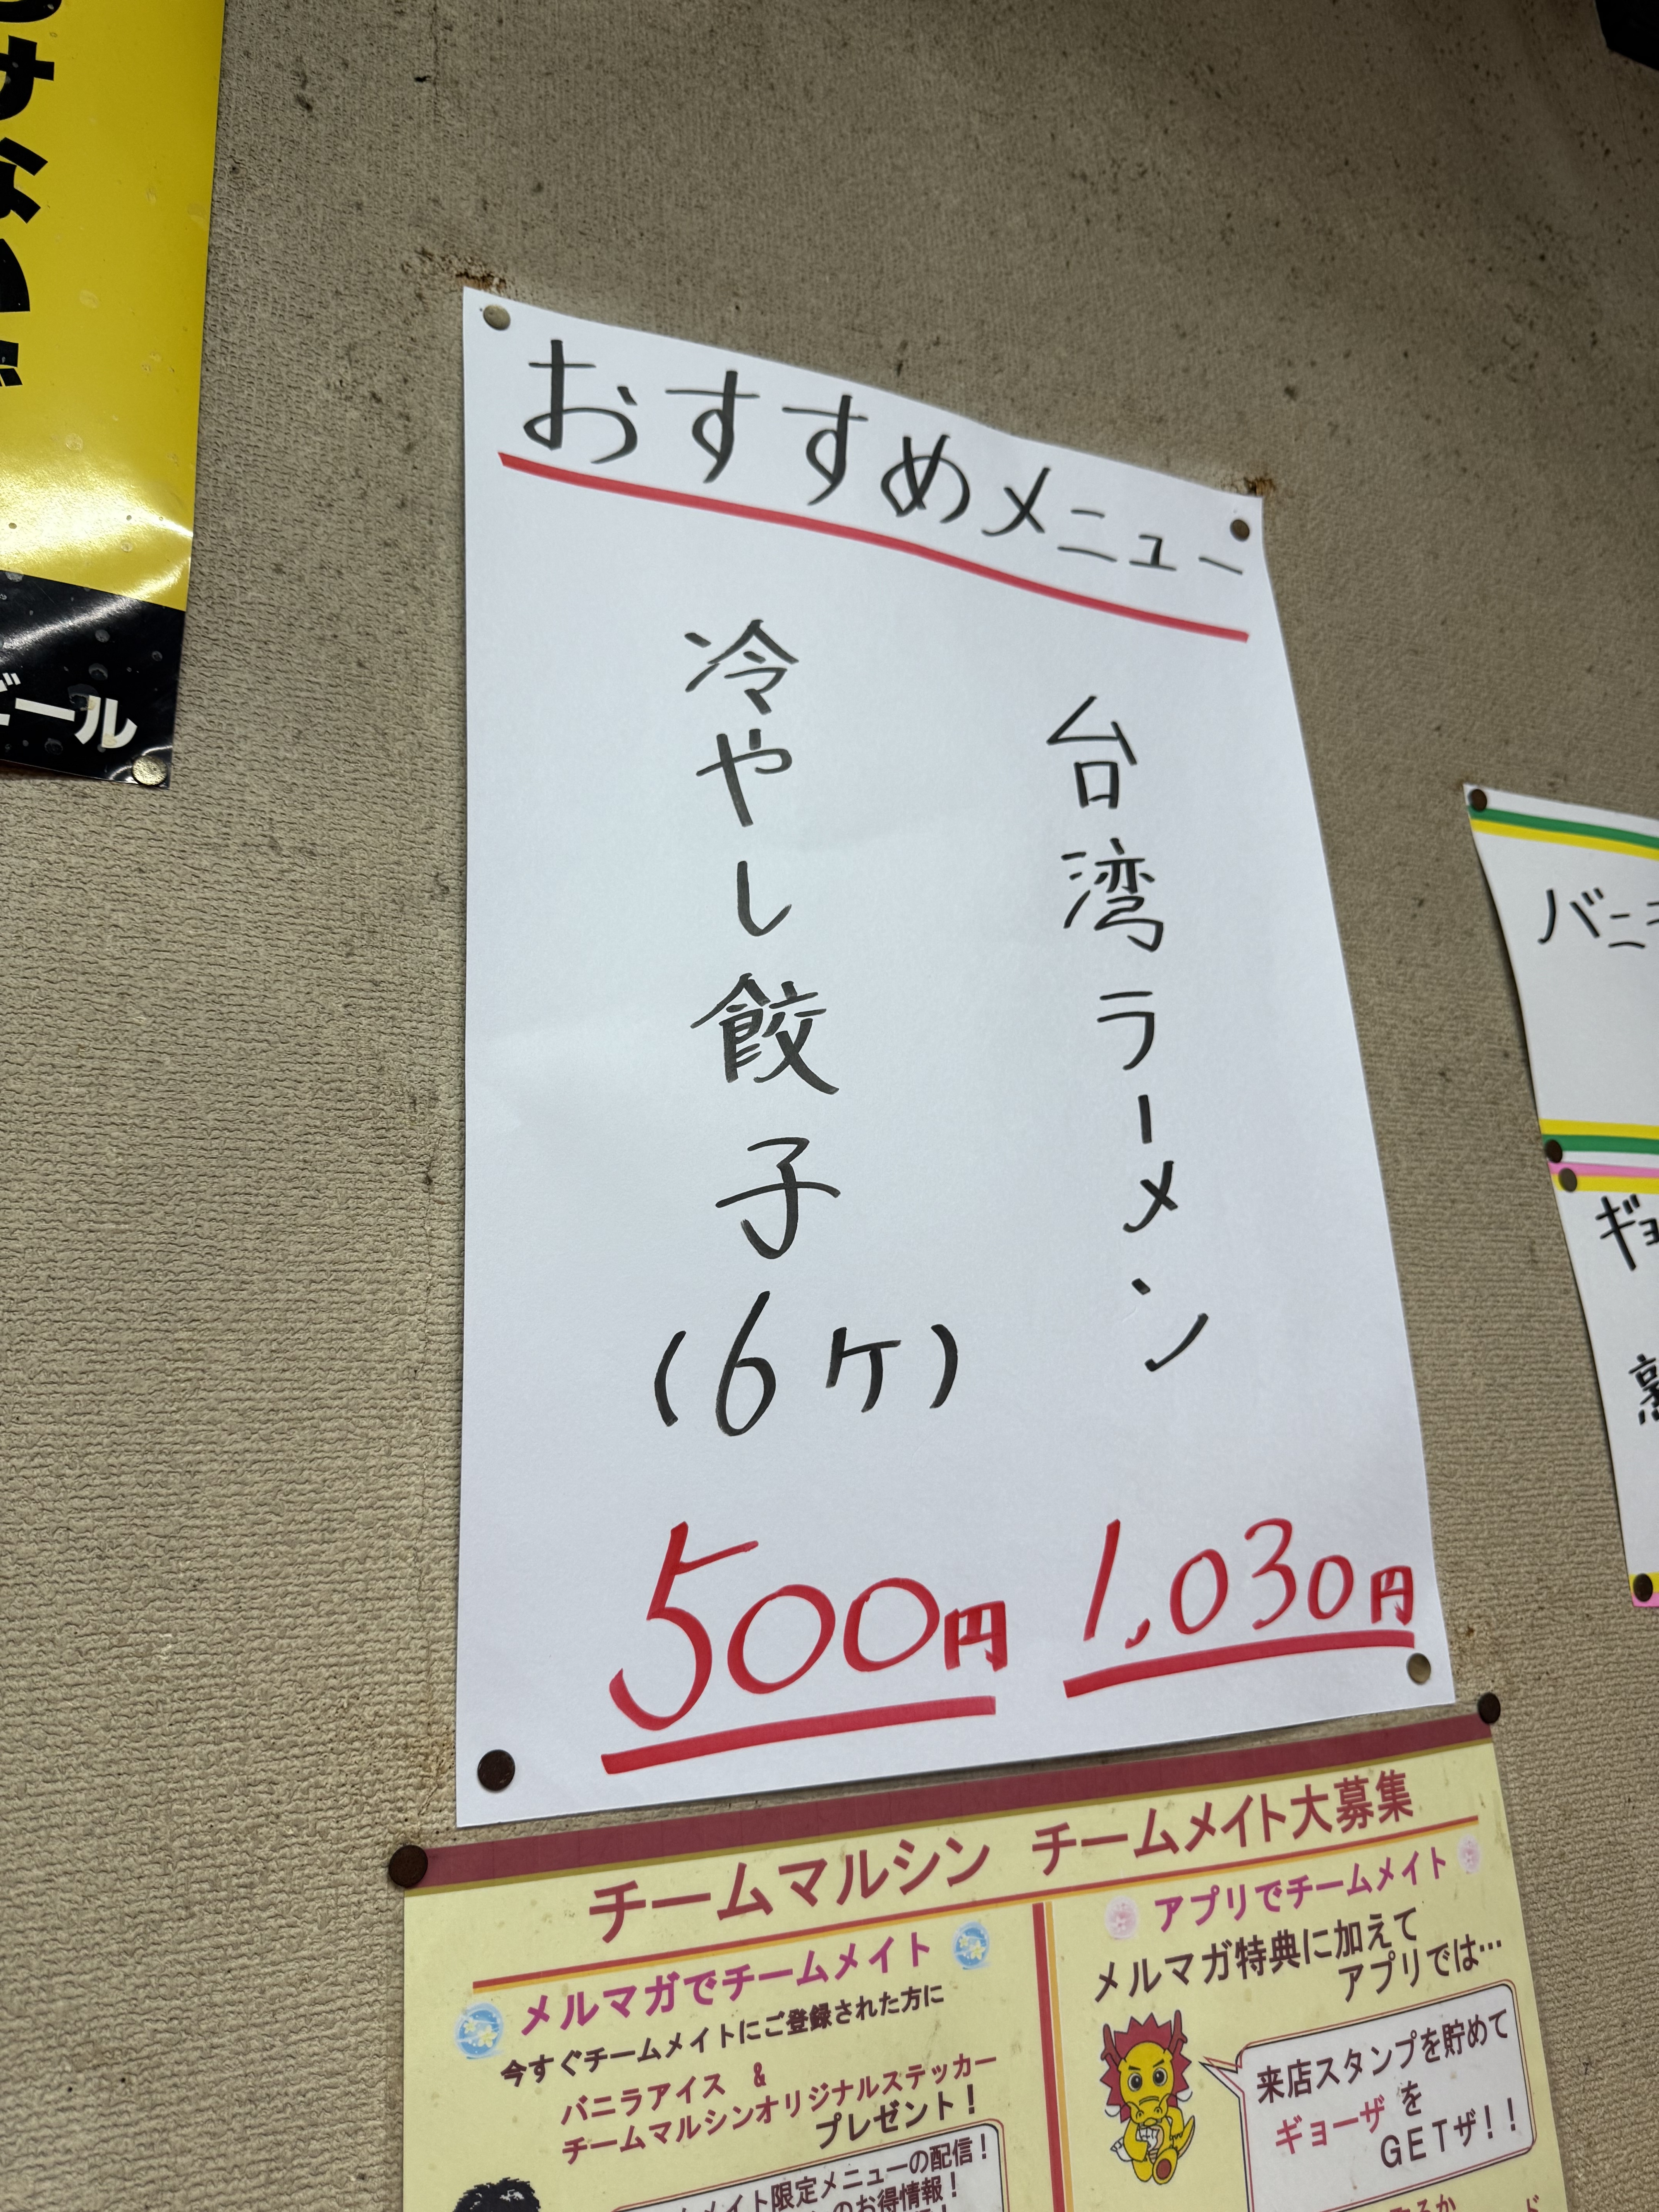 おすすめメニュー
台湾ラーメン
1,030円
冷やし餃子
(6ケ)
500円
ビール
バニ
ギョ
チームマルシン チームメイト大募集
メルマガでチームメイト
今すぐチームメイトにご登録された方に
バニラアイス &
チームマルシンオリジナルステッカー
プレゼント!
メイト限定メニューの配信!
のお得情報!
アプリでチームメイト
メルマガ特典に加えて
アプリでは…
来店スタンプを貯めて
ギョーザを
GETザ!!